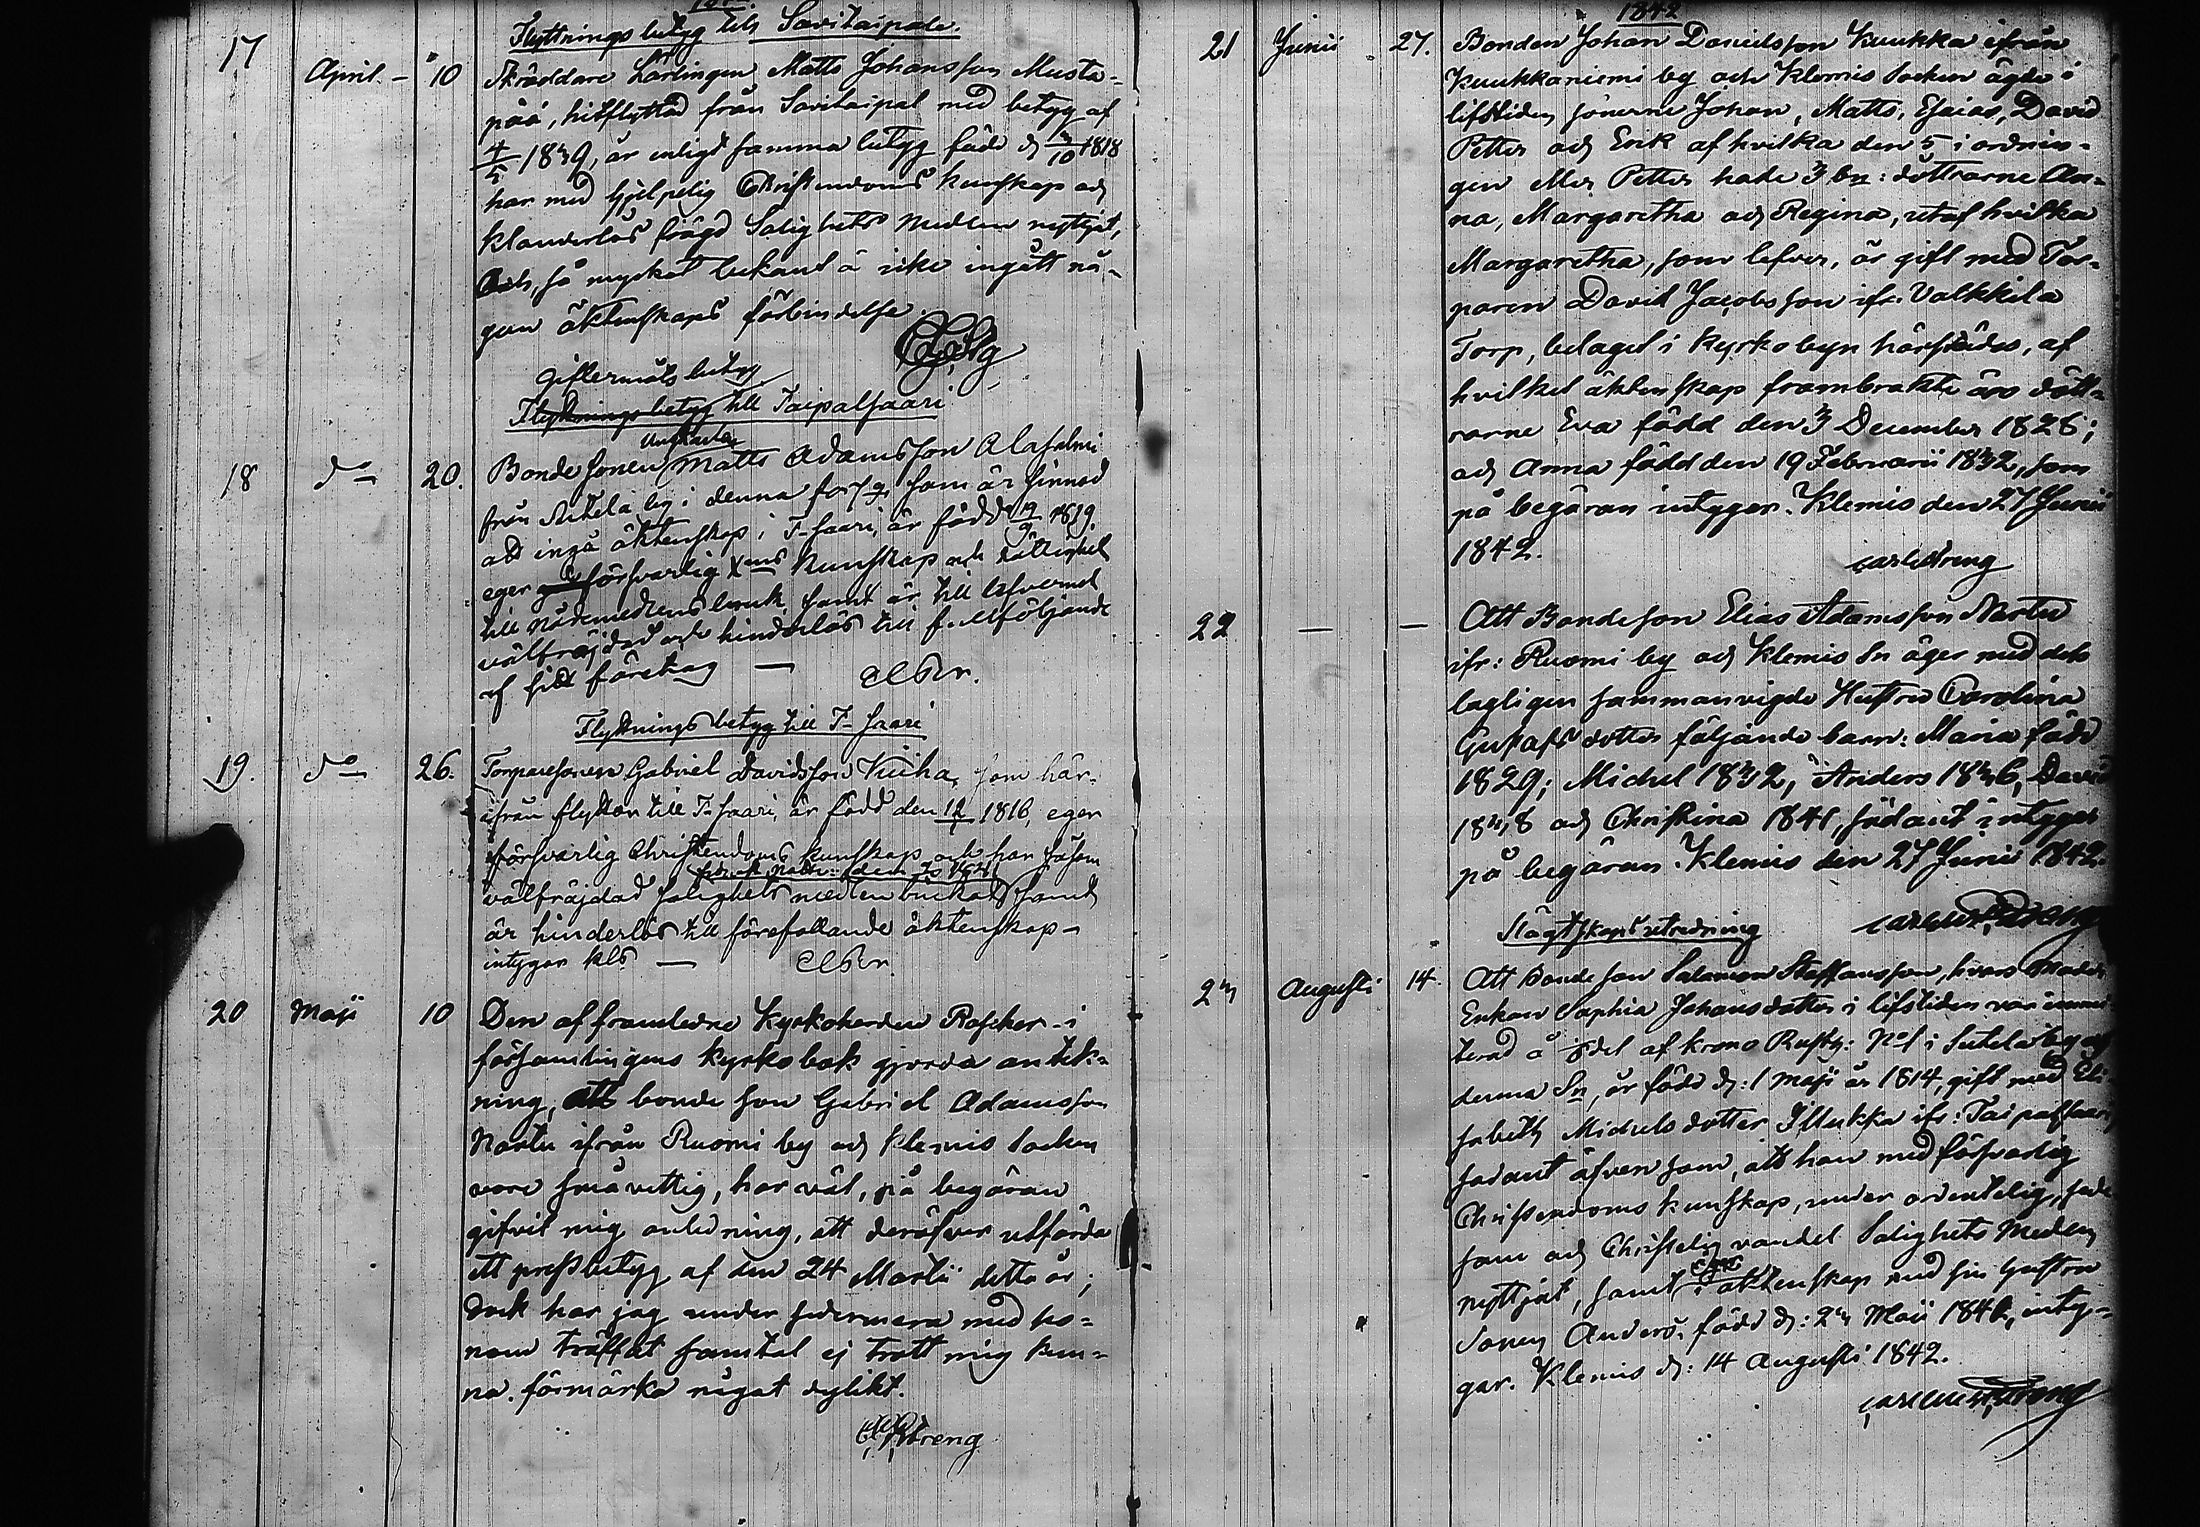 Flyttnings betyg till Savitaipale.
17 April. – 10 Skräddare Lärlingen Matts Johansson Musta-
pää, hitflyttad från Savitaipal med betyg af
4/5 1839, är enligt samma betyg född d 3/10 1818
har med hjelpelig Christendoms kunskap och
klanderlös frägd Salighets Medlen nyttjat,
Och, så mycket bekant ä icke ingått nå-
gon äktenskaps förbindelse.
Giftermåls betyg
Flyttnings betyg till Taipalsaari
ungkarlen
18 do 20. Bonde sonen Matts Adamsson Alasalmi
från by i denna som är sinnad
att ingå äktenskap i T-saari, är född 19/9 1819.
eger försvarlig Xms kunskap och rättighet
till nådemedlens bruk, samt är till lefvernet
välfräjdad och hinderlös till f. Allföljande
af sidt företag —
Flyttnings betyg till T-saari
19. do 26. Torparesonen Gabriel Davidsson Kiiha, som här-
ifrån flyttar till T-saari, är född den 12/1 1816, eger
försvarlig Christendoms kunskap och har såsom
välfräjdad salighets medlen brukat samt
är hinderlös till förefallande äktenskap –
intygar Kls. —
20 Maji 10 Den af framledne Kyrkoherden Roscher i
församlingens kyrkobok gjorda anteck-
ning, att bonde son Gabriel Adamsson
Nartu ifrån Ruomi by och Klemis Socken
vore småvettig, har väl, på begäran
gifvit mig anledning, att deröfver utfärda
ett prestbetyg af den 24 Martii detta år;
dock har jag under sedermera med ho-
nom träffat samtal ej trott mig kun-
na förmärka något dylikt.
Streng
1842
21 Junii 27. Bonden Johan Danielsson Kuukka ifrån
Kuukkaniemi by och Klemis Socken ägde i
lifstiden sönerne Johan, Matts, Esaias, David
Petter och Erik af hvilka den 5 i ordnin-
gen eller Petter hade 3 bn: döttrarne An-
na, Margaretha och Regina, utaf hvilka
Margaretha, som lefver, är gift med Tor-
paren David Jacobsson ifr. Valkkila
Torp, belaget i Kyrkobyn härstädes, af
hvilket äktenskap frambrakte äro dött-
rarne Eva född den 3 December 1828;
och Anna född den 19 Februarii 1832, som
på begäran intygar. Klemis den 27 Junii
1842.
Carl Streng
22 — — Att Bondeson Elias Adamsson Nartu
ifr: Ruomi by och Klemis Sn äger med dess
lagligen sammanvigde Hustru Carolina
Gustafsdotter följande barn: Maria född
1829; Michel 1832, Anders 1836, David
1838 och Christina 1841, sådant intygar
på begäran. Klemis den 27 Junii 1842.
Slägtskaps utredning
23 Augusti 14. Att Bonde son Salamon Staffansson, hvars Moder
Enkan Sophia Johansdotter i lifstiden var imma-
terad å del af krono Rusth: No 1 i Sutela by af
denna Sn, är född d: 1 Maji år 1814, gift med Eli-
sabeth Michelsdotter Illukka ifr: Taipalsaari,
sådant äfvensom, att han med försvarlig
Christendoms kunskap, under ordentelig, sede-
sam och Christelig vandel Salighets Medlen
nyttjat, samt eger i äktenskap med sin hustru
Sonen Anders, född d: 23 Maii 1840, inty-
gar. Klemis d: 14 Augusti 1842.